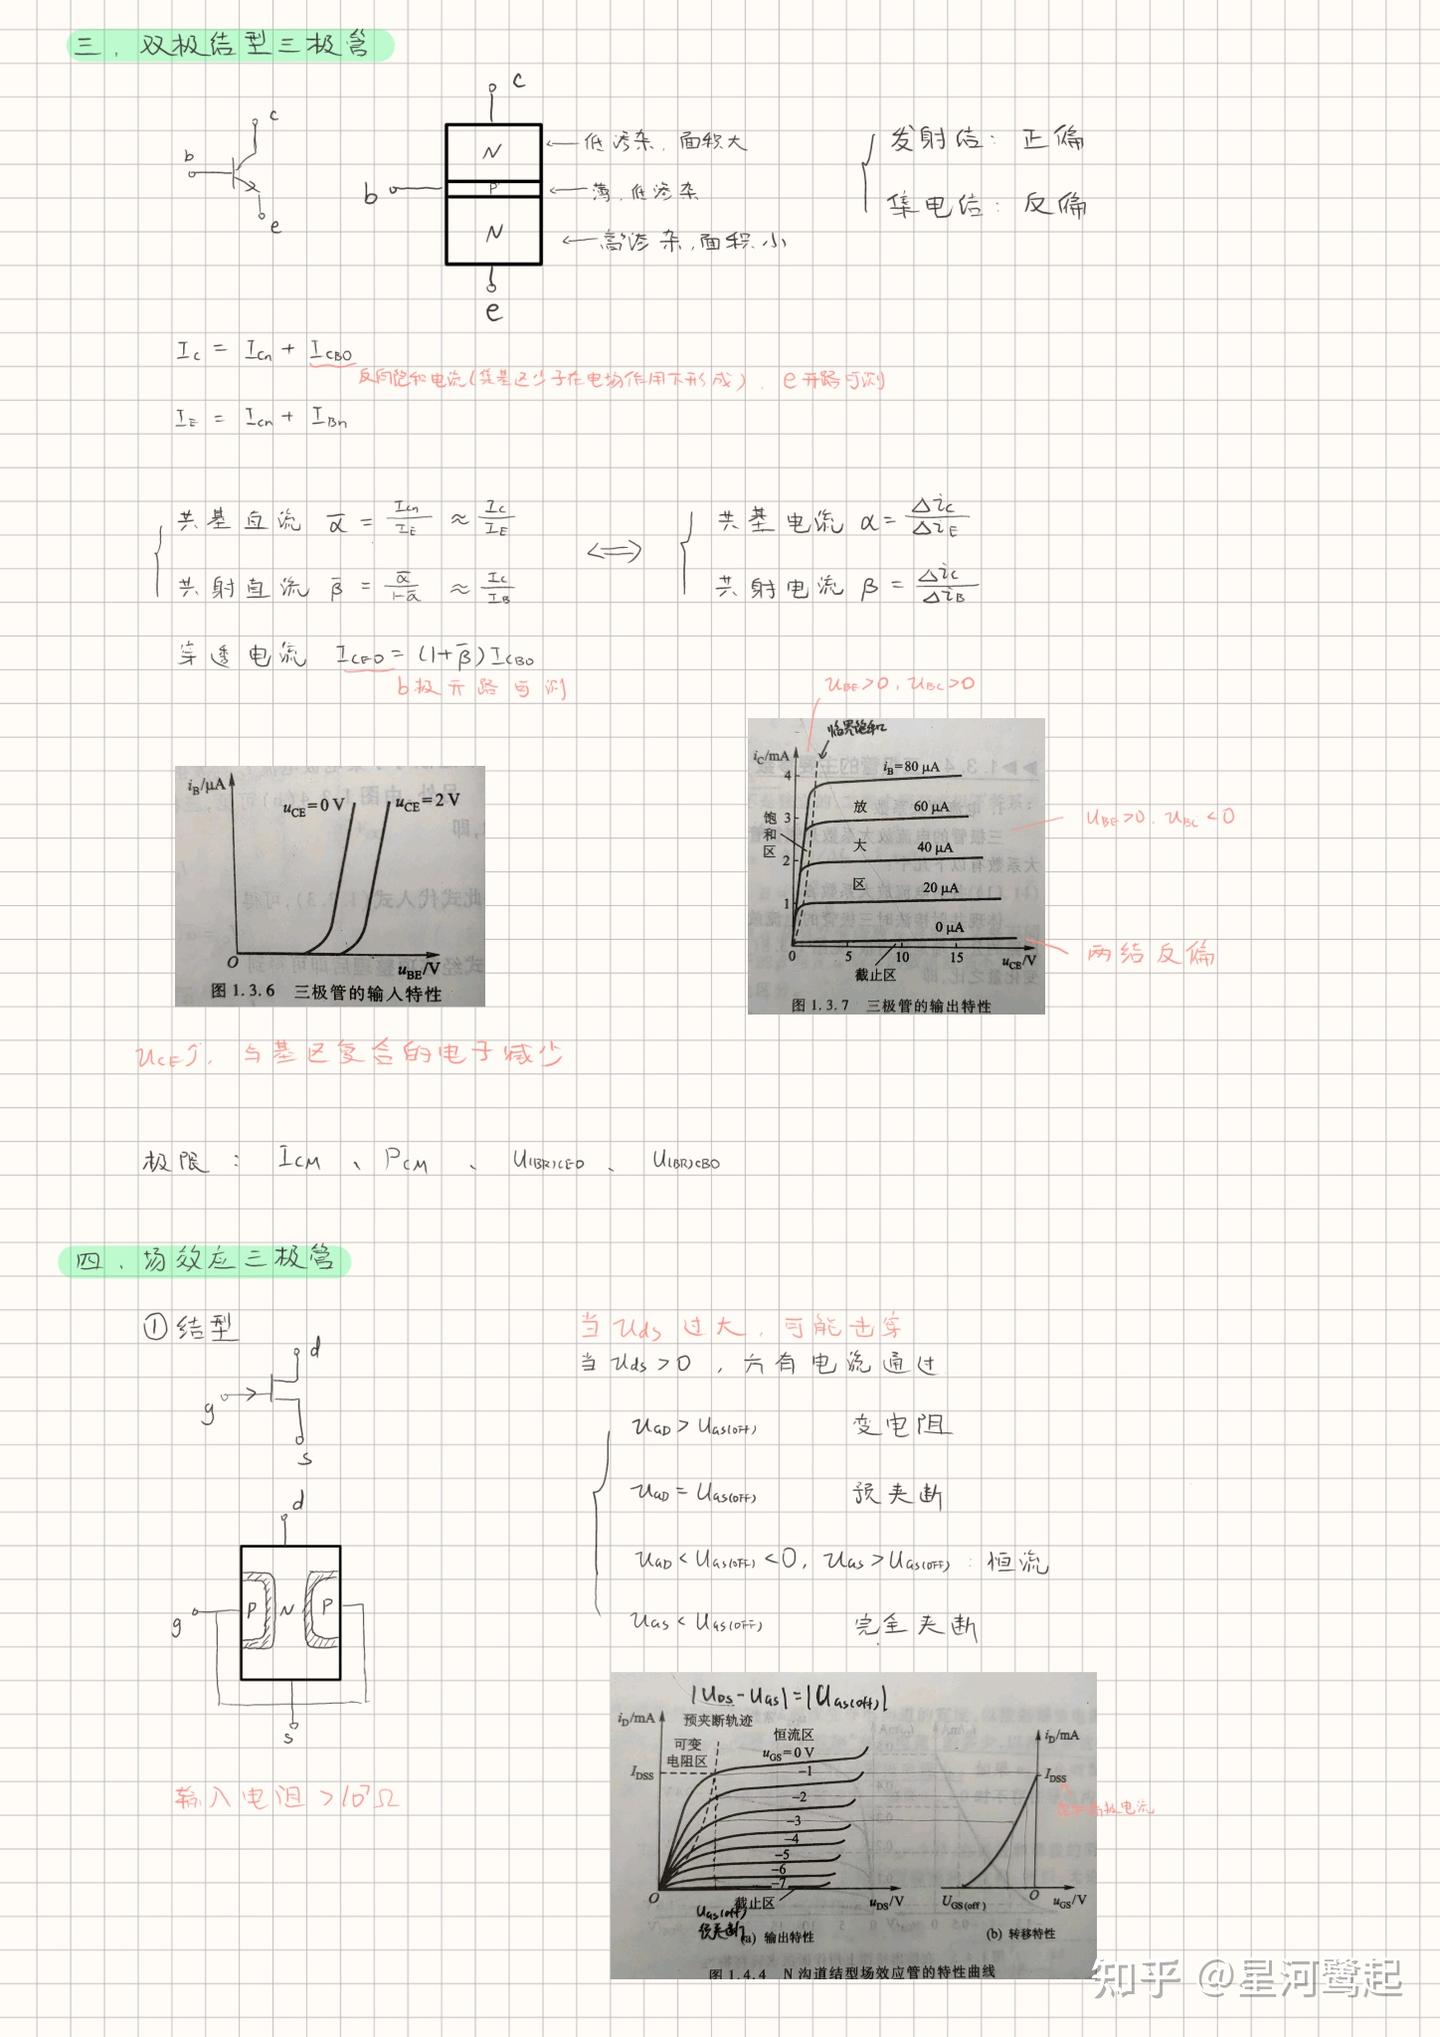 三．双极结型三极管
c
b
e
c
N
P
N
b
e
←低污杂，面积大
←薄，低渗杂
←高渗杂，面积小
发射结：正偏
集电结：反偏
I_C = I_Cn + I_CBO
反向饱和电流(集基区少子在电场作用下形成)，e开路可测
I_E = I_Cn + I_Bn
共基直流 ᾱ = I_Cn/I_E ≈ I_C/I_E
共射直流 β̄ = ᾱ/(1-ᾱ) ≈ I_C/I_B
⟺
共基电流 α = Δi_C/Δi_E
共射电流 β = Δi_C/Δi_B
穿透电流 I_CEO = (1+β̄)I_CBO
b极开路可测
u_BE>0，u_BC>0
i_B/μA
u_CE=0 V
u_CE=2 V
O
u_BE/V
图 1.3.6 三极管的输入特性
临界饱和
i_C/mA
4
3
2
1
饱和区
放大区
i_B=80 μA
60 μA
40 μA
20 μA
0 μA
0 5 10 15 u_CE/V
截止区
图 1.3.7 三极管的输出特性
u_BE>0，u_BC<0
两结反偏
u_CE↑，与基区复合的电子减少
极限：I_CM、P_CM、U_(BR)CEO、U_(BR)CBO
四．场效应三极管
①结型
d
g
s
d
g
P
N
P
s
输入电阻 >10⁷Ω
当 u_ds 过大，可能击穿
当 u_ds >0，方有电流通过
u_GD > U_GS(OFF) 变电阻
u_GD = U_GS(OFF) 预夹断
u_GD < U_GS(OFF) <0，u_GS > U_GS(OFF)：恒流
u_GS < U_GS(OFF) 完全夹断
|U_DS - U_GS| = |U_GS(off)|
i_D/mA
预夹断轨迹
恒流区
可变
电阻区
u_GS=0 V
I_DSS
-1
-2
-3
-4
-5
-6
-7
O
截止区
u_DS/V
U_GS(off)
预夹断
(a) 输出特性
i_D/mA
I_DSS
U_GS(off)
O
u_GS/V
(b) 转移特性
图 1.4.4 N 沟道结型场效应管的特性曲线
知乎 @星河鹭起